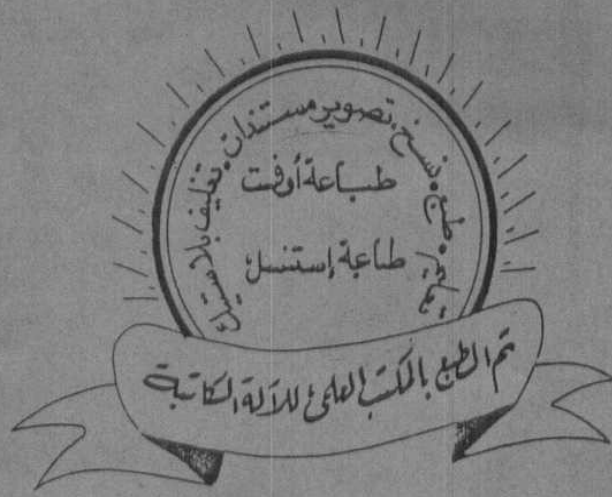 تعليم • طبع • نسخ • تصوير مستندات • تغليف بلاستيك
طباعة أوفست
طاعبة إستنسل
تم الطبع بالمكتب العلمى للآلة الكاتبة